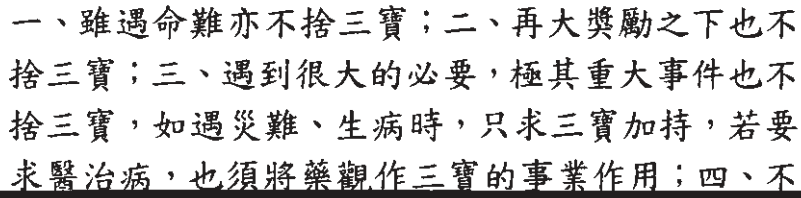 一、雖遇命難亦不捨三寶；二、再大獎勵之下也不
捨三寶；三、遇到很大的必要，極其重大事件也不
捨三寶，如遇災難、生病時，只求三寶加持，若要
求醫治病，也須將藥觀作三寶的事業作用；四、不